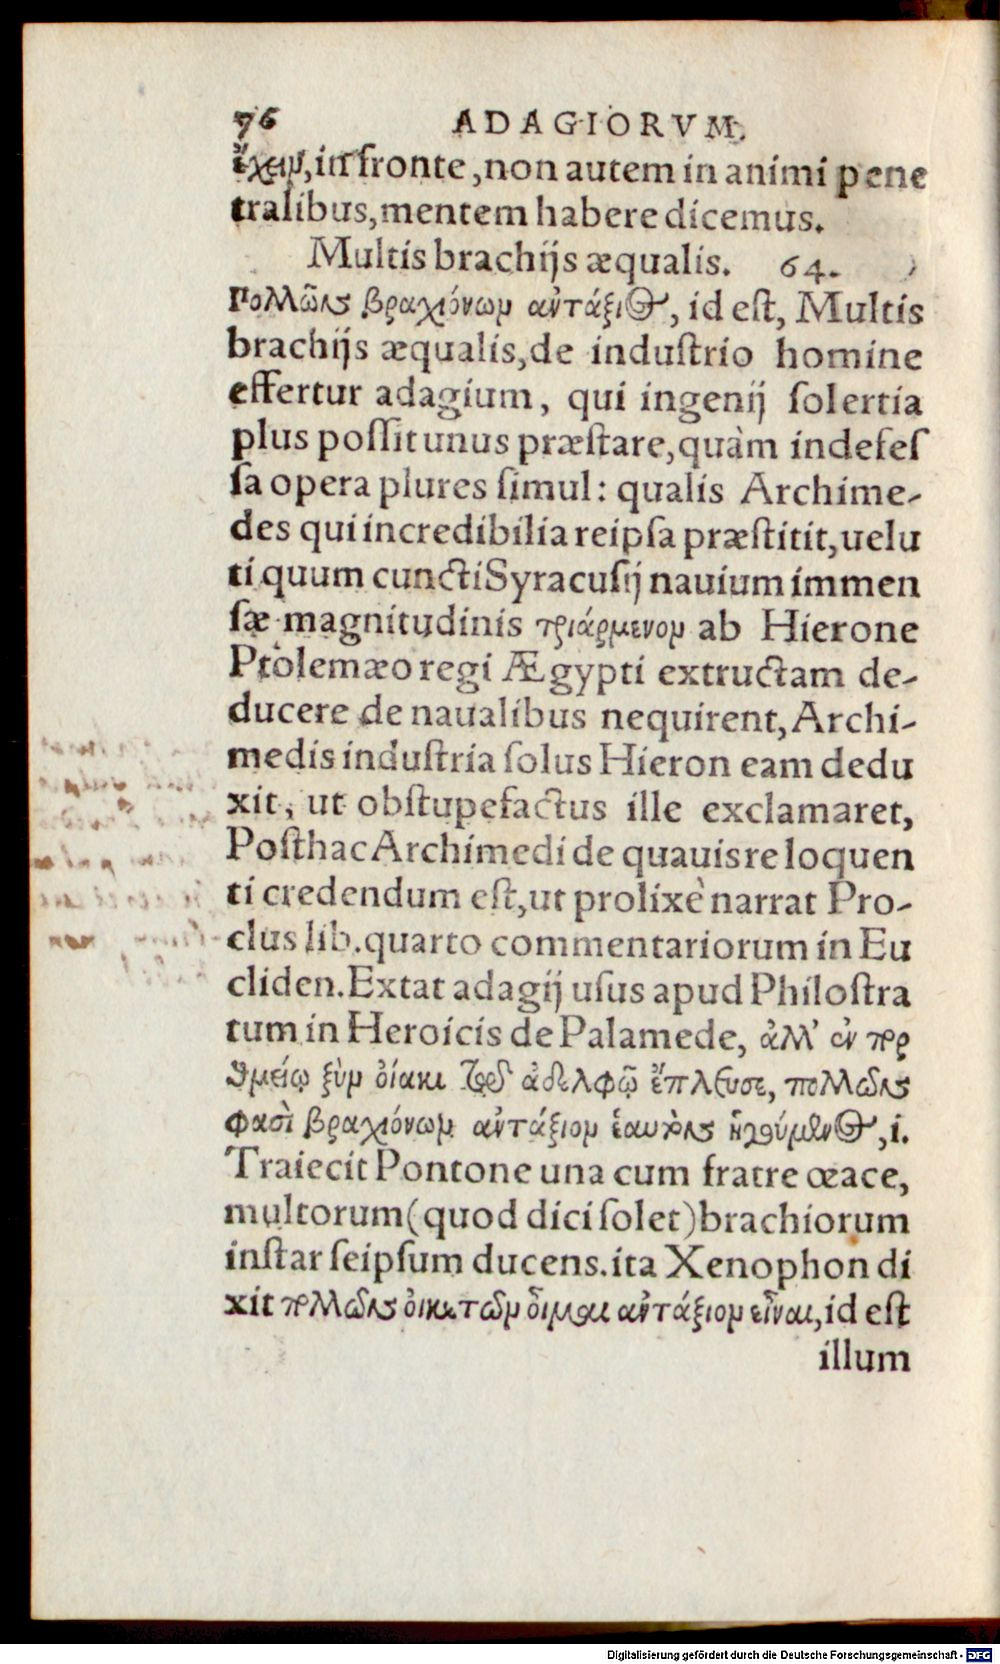 76 ADAGIORVM.
ἔχειν, in fronte, non autem in animi pene
tralibus, mentem habere dicemus.
Multis brachijs æqualis. 64.
Πολλῶν βραχιόνων ἀντάξιος, id est, Multis
brachijs æqualis, de industrio homine
effertur adagium, qui ingenij solertia
plus possit unus præstare, quàm indefes
sa opera plures simul: qualis Archime-
des qui incredibilia reipsa præstitit, uelu
ti quum cuncti Syracusij nauium immen
sæ magnitudinis τριάρμενον ab Hierone
Ptolemæo regi Ægypti extructam de-
ducere de naualibus nequirent, Archi-
medis industria solus Hieron eam dedu
xit, ut obstupefactus ille exclamaret,
Posthac Archimedi de quauis re loquen
ti credendum est, ut prolixè narrat Pro-
clus lib. quarto commentariorum in Eu
cliden. Extat adagij usus apud Philostra
tum in Heroicis de Palamede, ἀλλ' ἐν πορ
θμείῳ ξὺν οἴακι τῷ ἀδελφῷ ἔπλευσε, πολλῶν
φασὶ βραχιόνων ἀντάξιον ἑαυτὸν ἡγούμενος, i.
Traiecit Pontone una cum fratre œace,
multorum (quod dici solet) brachiorum
instar seipsum ducens. ita Xenophon di
xit πολλῶν οἰκετῶν οἶμαι ἀντάξιον εἶναι, id est
illum
Digitalisierung gefördert durch die Deutsche Forschungsgemeinschaft - DFG